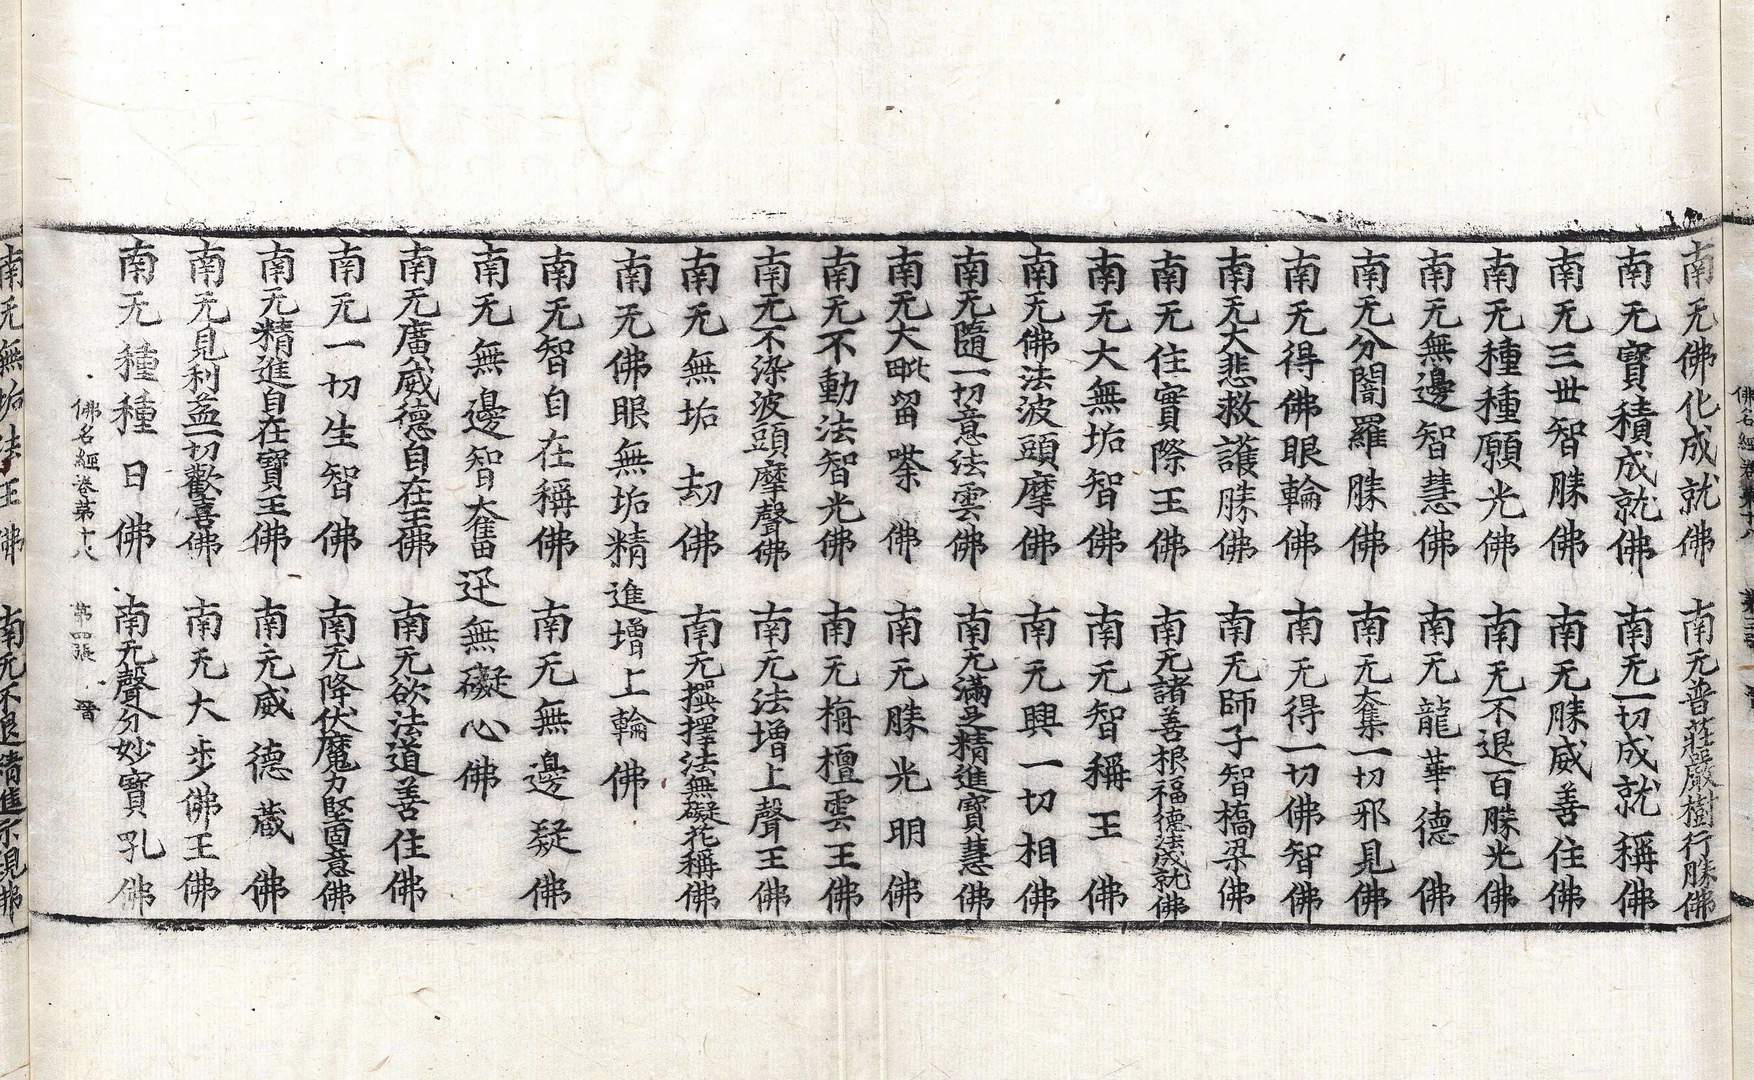 佛名經卷第十八 第三張 晉
南无佛化成就佛 南无普莊嚴樹行勝佛
南无寶積成就佛 南无一切成就稱佛
南无三世智勝佛 南无勝威善住佛
南无種種願光佛 南无不退百勝光佛
南无無邊智慧佛 南无龍華德佛
南无分闍羅勝佛 南无大集一切邪見佛
南无得佛眼輪佛 南无得一切佛智佛
南无大悲救護勝佛 南无師子智橋梁佛
南无住實際王佛 南无諸善根福德法成就佛
南无大無垢智佛 南无智稱王佛
南无佛法波頭摩佛 南无興一切相佛
南无隨一切意法雲佛 南无滿足精進寶慧佛
南无大毗留荼佛 南无勝光明佛
南无不動法智光佛 南无栴檀雲王佛
南无不染波頭摩聲佛 南无法增上聲王佛
南无無垢劫佛 南无撰擇法無礙花稱佛
南无佛眼無垢精進增上輪佛
南无智自在稱佛 南无無邊疑佛
南无無邊智奮迅無礙心佛
南无廣威德自在王佛 南无欲法道善住佛
南无一切生智佛 南无降伏魔力堅固意佛
南无精進自在寶王佛 南无威德藏佛
南无見利益一切歡喜佛 南无大步佛王佛
南无種種日佛 南无聲分妙寶乳佛
佛名經卷第十八 第四張 晉
南无無垢法王佛 南无不退精進示現佛